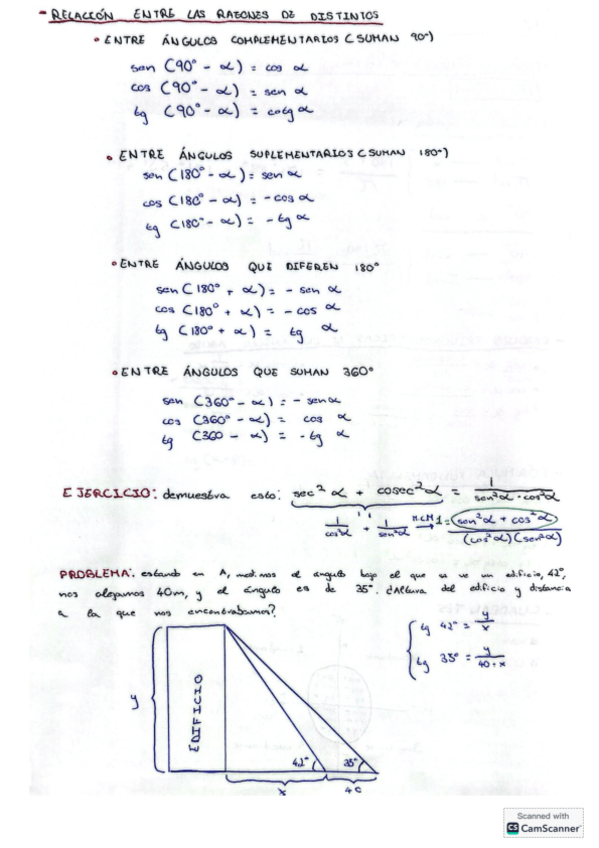 - RELACIÓN ENTRE LAS RAZONES DE DISTINTOS
• ENTRE ÁNGULOS COMPLEMENTARIOS (SUMAN 90º)
sen (90° - α) = cos α
cos (90° - α) = sen α
tg (90° - α) = cotg α
• ENTRE ÁNGULOS SUPLEMENTARIOS (SUMAN 180º)
sen (180° - α) = sen α
cos (180° - α) = - cos α
tg (180° - α) = - tg α
• ENTRE ÁNGULOS QUE DIFEREN 180°
sen (180° + α) = - sen α
cos (180° + α) = - cos α
tg (180° + α) = tg α
• ENTRE ÁNGULOS QUE SUMAN 360°
sen (360° - α) = - sen α
cos (360° - α) = cos α
tg (360 - α) = - tg α
EJERCICIO: demuestra esto: sec² α + cosec² α = 1 / sen²α · cos²α
1 / cos²α + 1 / sen²α → M.C.M 1 = sen²α + cos²α / (cos²α)(sen²α)
PROBLEMA: estando en A, medimos el angulo bajo el que se ve un edificio, 42°,
nos alejamos 40m, y el ángulo es de 35°. ¿Altura del edificio y distancia
a la que nos encontrabamos?
tg 42° = y / x
tg 35° = y / 40 + x
y
EDIFICIO
42°
35°
x
40
Scanned with
CS CamScanner